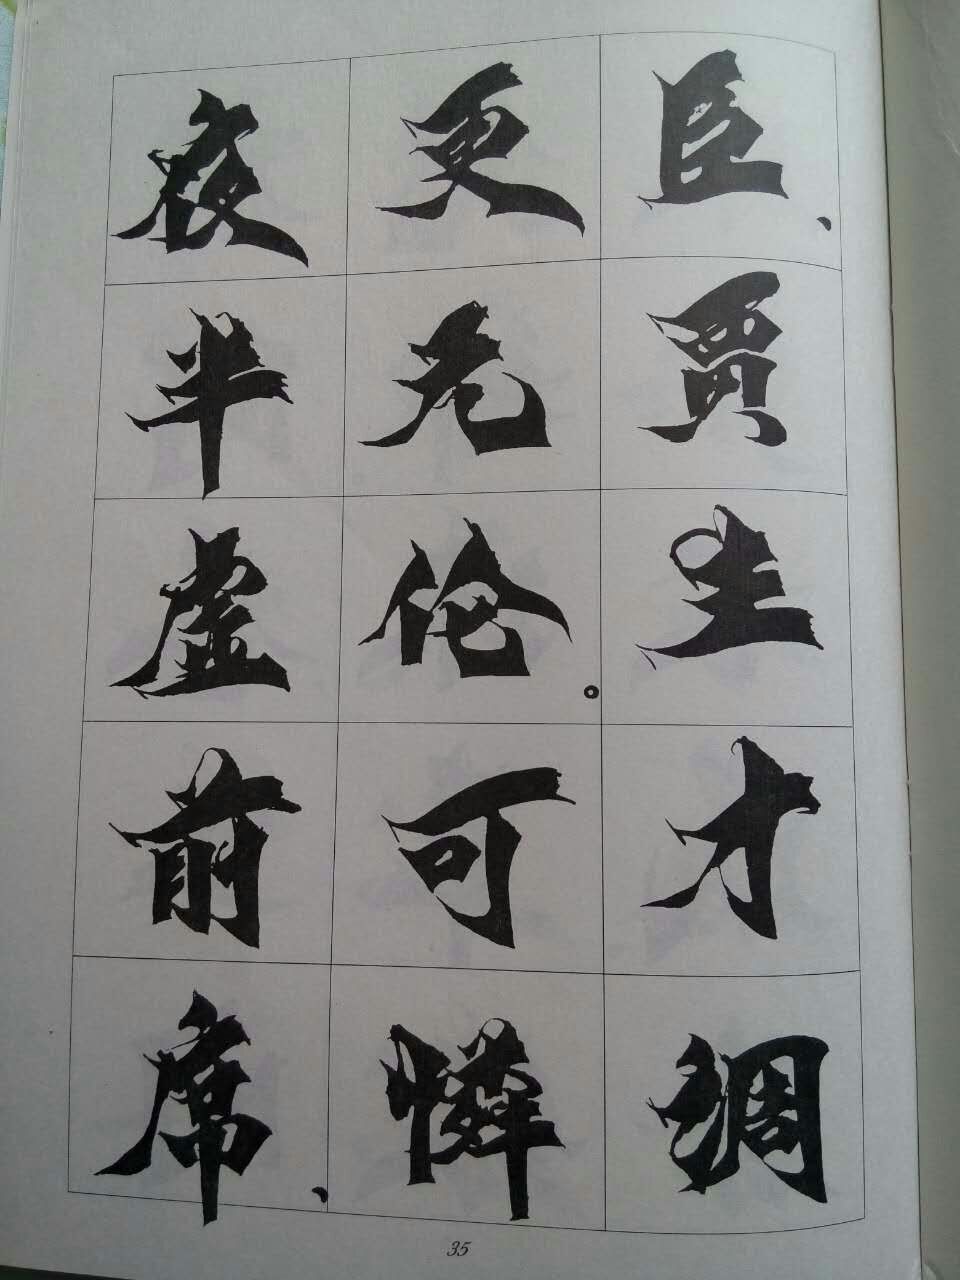 臣、贾生才调
更无伦。可怜
夜半虚前席、
35